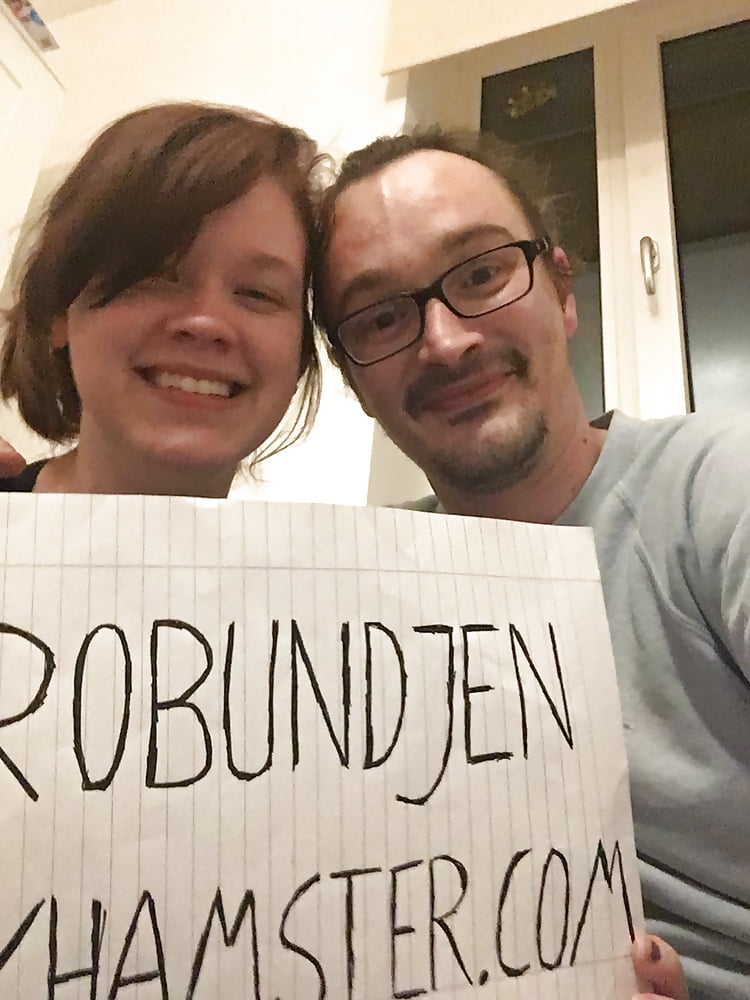 ROBUNDJEN
XHAMSTER.COM